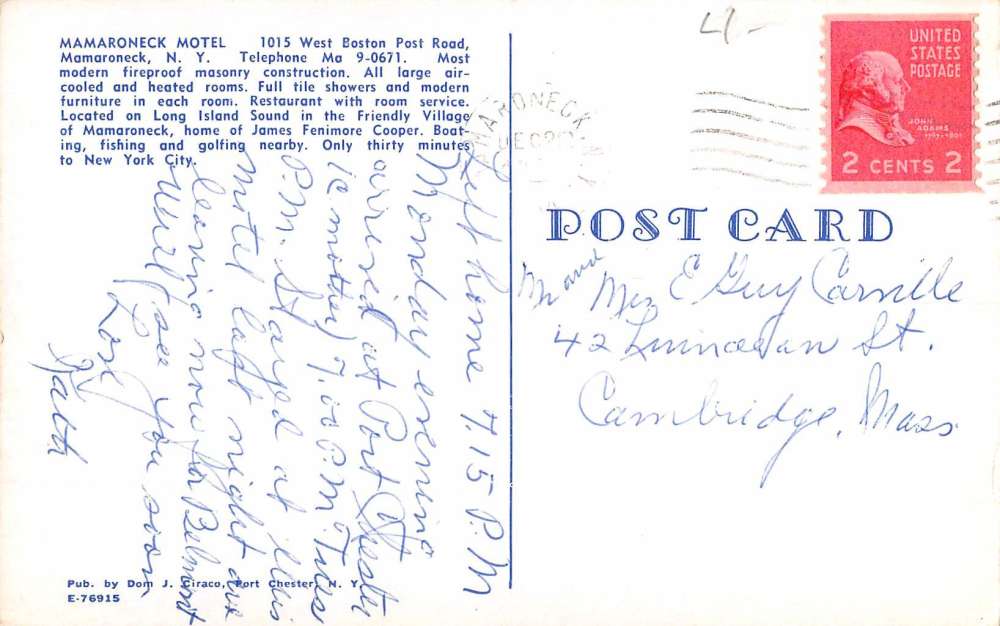 MAMARONECK MOTEL 1015 West Boston Post Road,
Mamaroneck, N. Y. Telephone Ma 9-0671. Most
modern fireproof masonry construction. All large air-
cooled and heated rooms. Full tile showers and modern
furniture in each room. Restaurant with room service.
Located on Long Island Sound in the Friendly Village
of Mamaroneck, home of James Fenimore Cooper. Boat-
ing, fishing and golfing nearby. Only thirty minutes
to New York City.
Left home 7.15 P.M
Monday evening
arrived at Port Chester
7.00 P.M. Tues
P.M. Stayed at this
motel last night are
leaving now for Belmont
Will see you soon
Love
Pub. by Dom J. Ciraco, Port Chester, N. Y.
E-76915
4-
MAMARONECK
DEC
UNITED
STATES
POSTAGE
JOHN
ADAMS
1797-1801
2 CENTS 2
POST CARD
Mr and Mrs E Guy Carville
42 St.
Cambridge, Mass